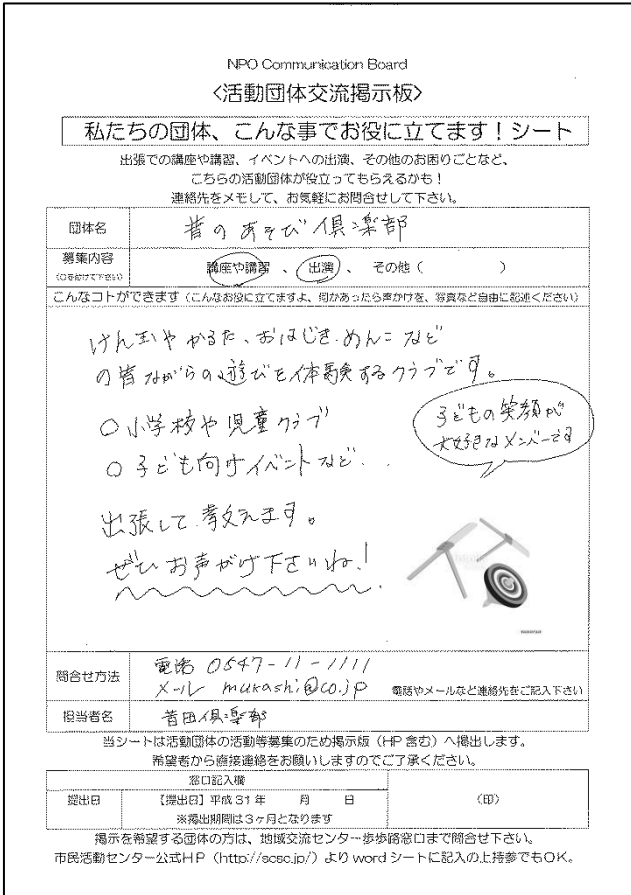 NPO Communication Board
<活動団体交流掲示板>
私たちの団体、こんな事でお役に立てます!シート
出張での講座や講習、イベントへの出演、その他のお困りごとなど、
こちらの活動団体が役立ってもらえるかも!
連絡先をメモして、お気軽にお問合せして下さい。
団体名 昔のあそび倶楽部
募集内容
(○を付けて下さい)
講座や講習 、 出演 、 その他( )
こんなコトができます(こんなお役に立てますよ、何かあったら声かけを、写真など自由に記述ください)
けん玉や かるた、おはじき、めんこ など
の昔ながらの遊びを体験するクラブです。
○ 小学校や児童クラブ
○ 子ども向けイベントなど...
子どもの笑顔が
大好きなメンバーです
出張して教えます。
ぜひお声がけ下さいね!
問合せ方法
電話 0547-11-1111
メール mukashi@co.jp
電話やメールなど連絡先をご記入下さい
担当者名 昔田倶楽部
当シートは活動団体の活動等募集のため掲示版(HP含む)へ掲出します。
希望者から直接連絡をお願いしますのでご了承ください。
窓口記入欄
提出日 【提出日】平成 31 年 月 日 (印)
※掲出期間は3ヶ月となります
掲示を希望する団体の方は、地域交流センター歩歩路窓口まで問合せ下さい。
市民活動センター公式HP(http://scsc.jp/)より word シートに記入の上持参でもOK。